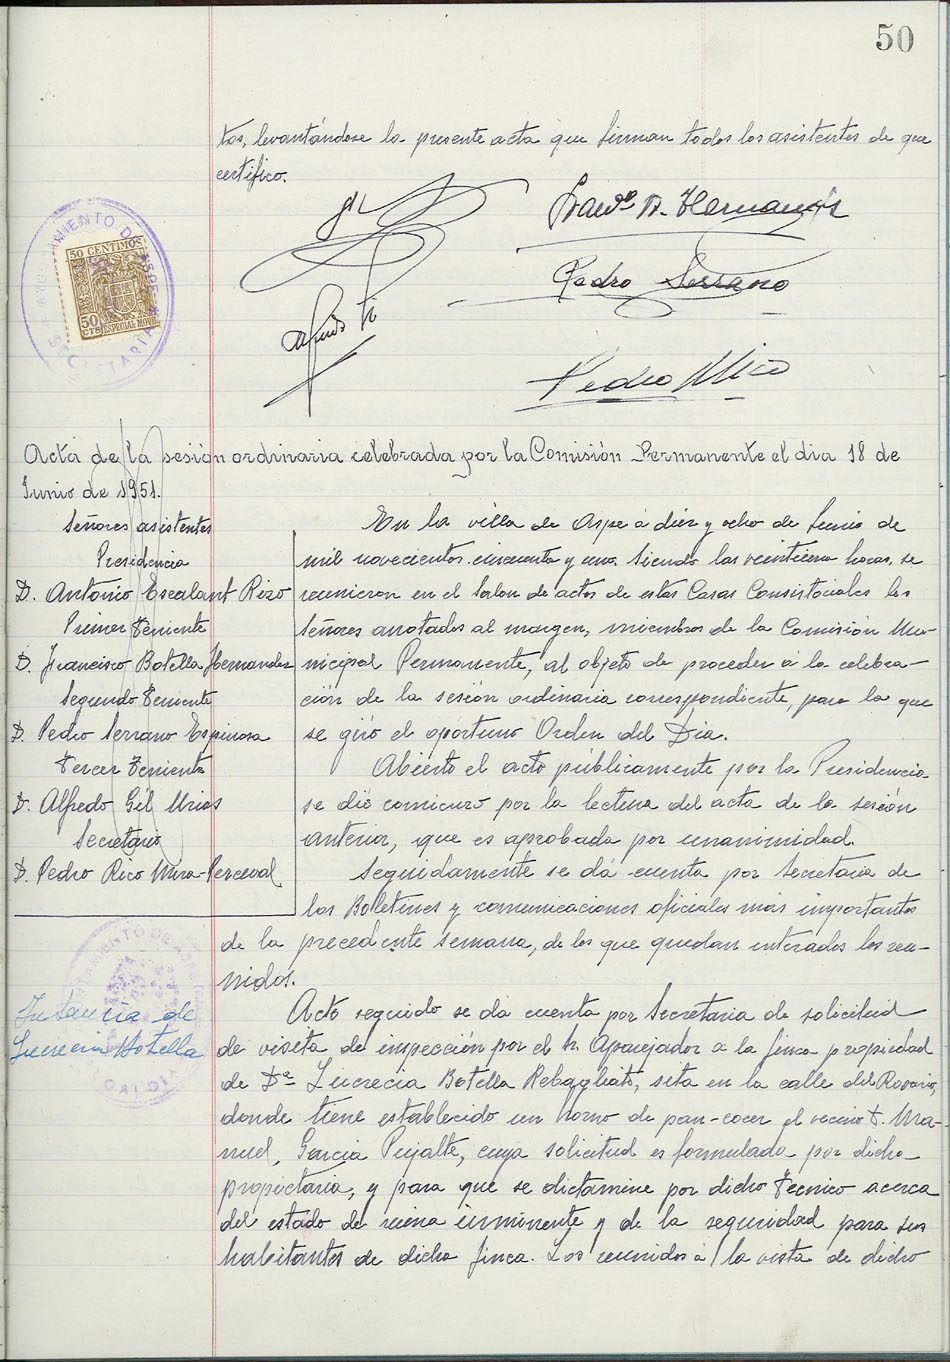 50
tos, levantándose la presente acta que firman todos los asistentes de que
certifico.
AYUNTAMIENTO DE ASPE
SECRETARIA
50 CENTIMOS
50
CTS ESPECIAL MOVIL
Franco B. Hernández
Pedro Serrano
Pedro Rico
Acta de la sesión ordinaria celebrada por la Comisión Permanente el dia 18 de
Junio de 1951.
Señores asistentes
Presidencia
D. Antonio Escalant Rizo
Primer Teniente
D. Francisco Botella Hernandez
Segundo Teniente
D. Pedro Serrano Espinosa
Tercer Teniente
D. Alfredo Gil Urios
Secretario
D. Pedro Rico Mira-Perceval
En la villa de Aspe á diez y ocho de Junio de
mil novecientos cincuenta y uno. Siendo las veintiuna horas, se
reunieron en el Salon de actos de estas Casas Consistoriales los
Señores anotados al margen, miembros de la Comisión Mu-
nicipal Permanente, al objeto de proceder á la celebra-
ción de la sesión ordinaria correspondiente, para la que
se giró el oportuno Orden del Dia.
Abierto el acto públicamente por la Presidencia
se dio comienzo por la lectura del acta de la sesión
anterior, que es aprobada por unanimidad.
Seguidamente se dá cuenta por Secretaria de
los Boletines y comunicaciones oficiales más importantes
de la precedente semana, de los que quedan enterados los reu-
nidos.
Instancia de
Lucrecia Botella
AYUNTAMIENTO DE ASPE
ALCALDIA
Acto seguido se da cuenta por Secretaria de solicitud
de visita de inspección por el Sr. Aparejador a la finca propiedad
de Dª Lucrecia Botella Rebagliato, sita en la calle del Rosario,
donde tiene establecido un horno de pan-cocer el vecino D. Ma-
nuel, García Pujalte, cuya solicitud es formulada por dicha
propietaria, y para que se dictamine por dicho Tecnico acerca
del estado de ruina inminente y de la seguridad para sus
habitantes de dicha finca. Los reunidos á la vista de dicho